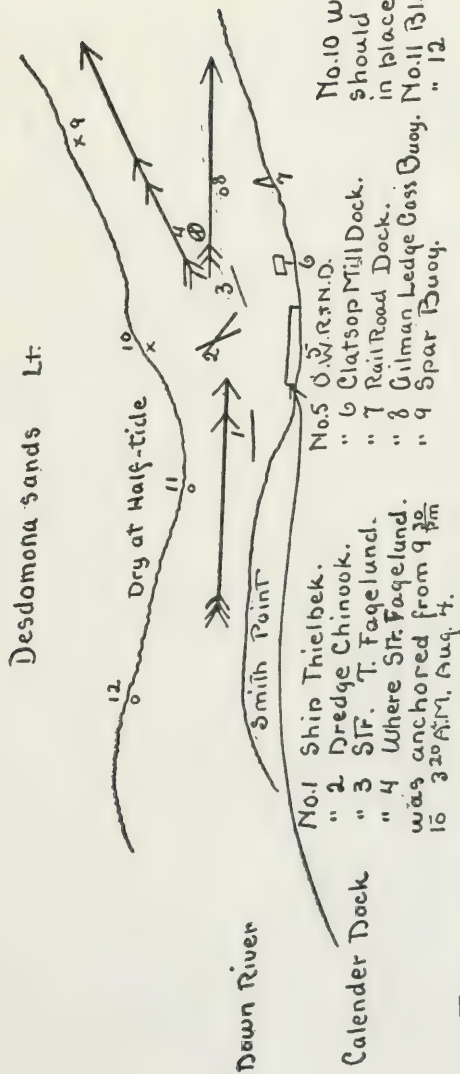 Desdomona Sands Lt.
x 9
10
x
11
12
Dry at Half-tide
4
8
3
2
1
7
6
5
Smith Point
Down River
Calender Dock
No.1 Ship Thielbek.
" 2 Dredge Chinook.
" 3 Str. T. Fagelund.
" 4 Where Str. Fagelund.
was anchored from 9 30 pm
to 3 20 A.M. Aug. 4.
No.5 O.W.R.+N.D.
" 6 Clatsop Mill Dock.
" 7 Rail Road Dock.
" 8 Gilman Ledge Gass Buoy.
" 9 Spar Buoy.
No.10 W
should
in place
No.11 Bl.
" 12